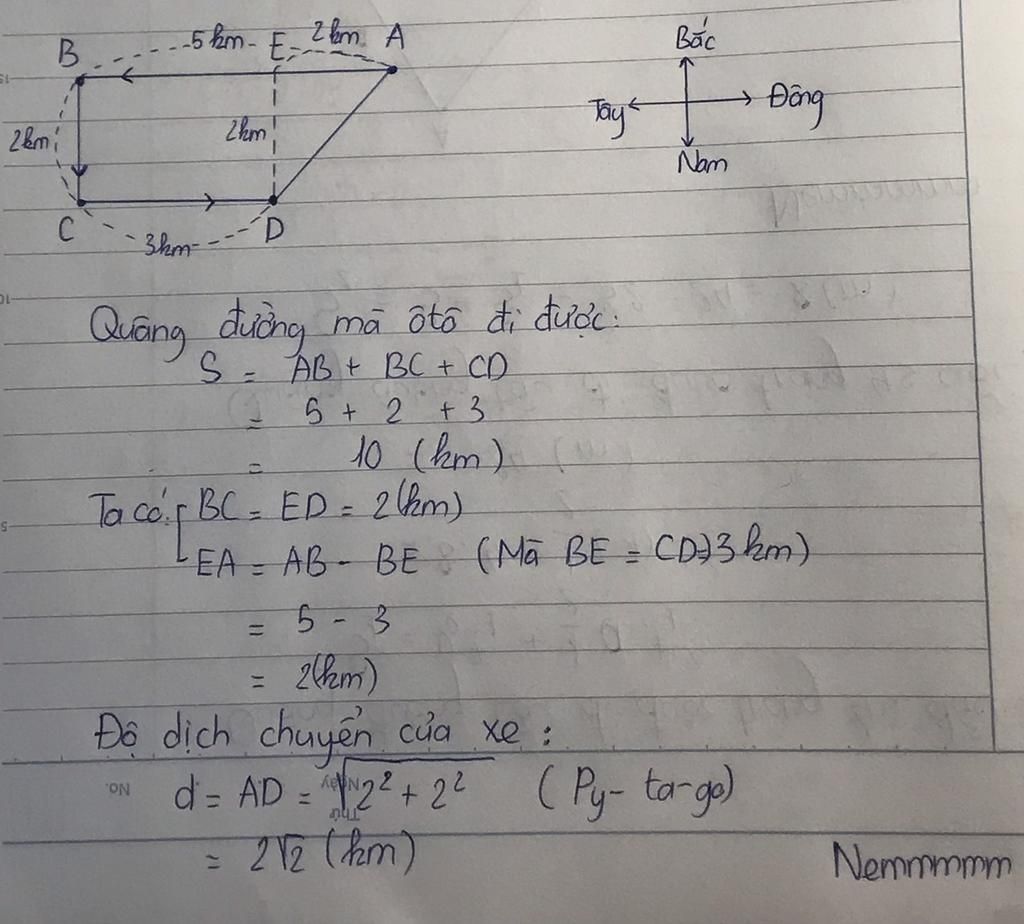 B 5km E 2km A
2km 2km
C 3km D
Bắc
Tây Đông
Nam
Quãng đường mà ôtô đi được:
S = AB + BC + CD
= 5 + 2 + 3
= 10 (km)
Ta có: BC = ED = 2(km)
EA = AB - BE (Mà BE = CD=3km)
= 5 - 3
= 2(km)
Độ dịch chuyển của xe :
d = AD = √2² + 2² (Py-ta-go)
= 2√2 (km)
Nemmmmm
No.